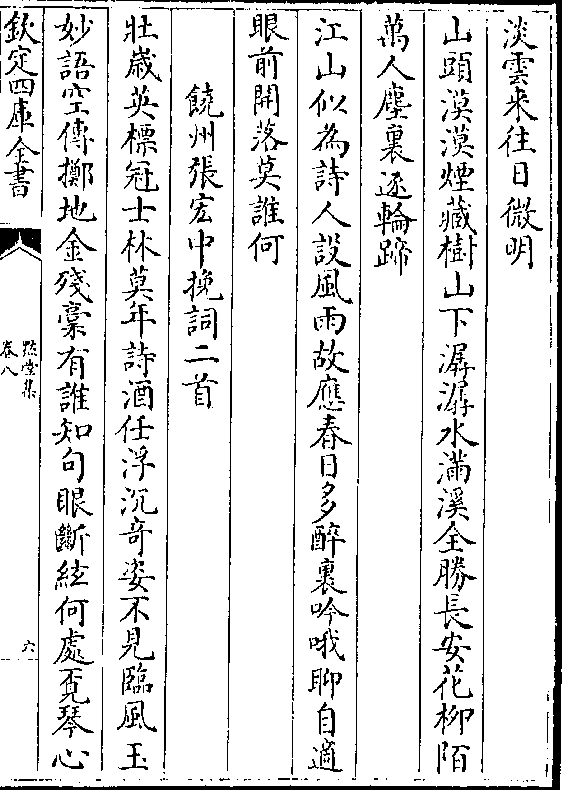 淡雲来往日微明
山頭漠漠煙藏樹山下潺潺水滿溪全勝長安花柳陌
萬人塵裏逐輪蹄
江山似為詩人設風雨故應春日多醉裏吟哦聊自適
眼前開落莫誰何
饒州張宏中挽詞二首
壯嵗英標冠士林莫年詩酒任浮沉竒姿不見臨風玉
妙語空傳擲地金殘藁有誰知句眼斷絃何處覓琴心
欽定四庫全書
默堂集
卷八
六